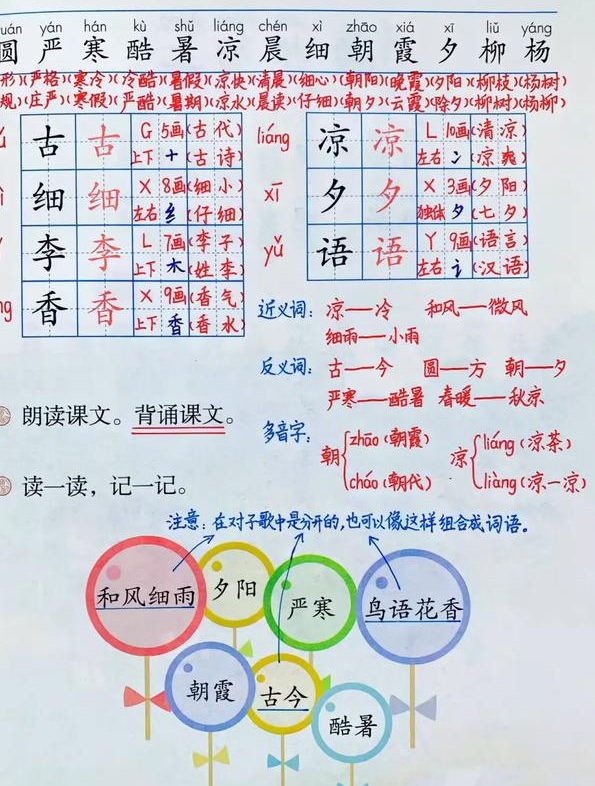 yuán yán hán kù shǔ liáng chén xì zhāo xiá xī liǔ yáng
圆 严 寒 酷 暑 凉 晨 细 朝 霞 夕 柳 杨
形)(严格)(寒冷)(冷酷)(暑假)(凉快)(清晨)(细心)(朝阳)(晚霞)(夕阳)(柳枝)(杨树)
规)(庄严)(寒假)(严酷)(暑期)(凉水)(晨读)(仔细)(朝夕)(云霞)(除夕)(柳树)(杨柳)
古 古 G 5画(古代)
上下 十 (古诗)
细 细 X 8画(细小)
左右 纟 (仔细)
李 李 L 7画(李子)
上下 木 (姓李)
香 香 X 9画(香气)
上下 香 (香水)
liáng 凉 凉 L 10画(清凉)
左右 冫 (凉爽)
xī 夕 夕 X 3画(夕阳)
独体 夕 (七夕)
yǔ 语 语 Y 9画(语言)
左右 讠 (汉语)
近义词: 凉—冷 和风—微风
细雨—小雨
反义词: 古—今 圆—方 朝—夕
严寒—酷暑 春暖—秋凉
朗读课文。背诵课文。
多音字: 朝 zhāo(朝霞) cháo(朝代) 凉 liáng(凉茶) liàng(凉一凉)
读一读，记一记。
注意: 在对子歌中是分开的,也可以像这样组合成词语。
和风细雨 夕阳 严寒 鸟语花香
朝霞 古今 酷暑